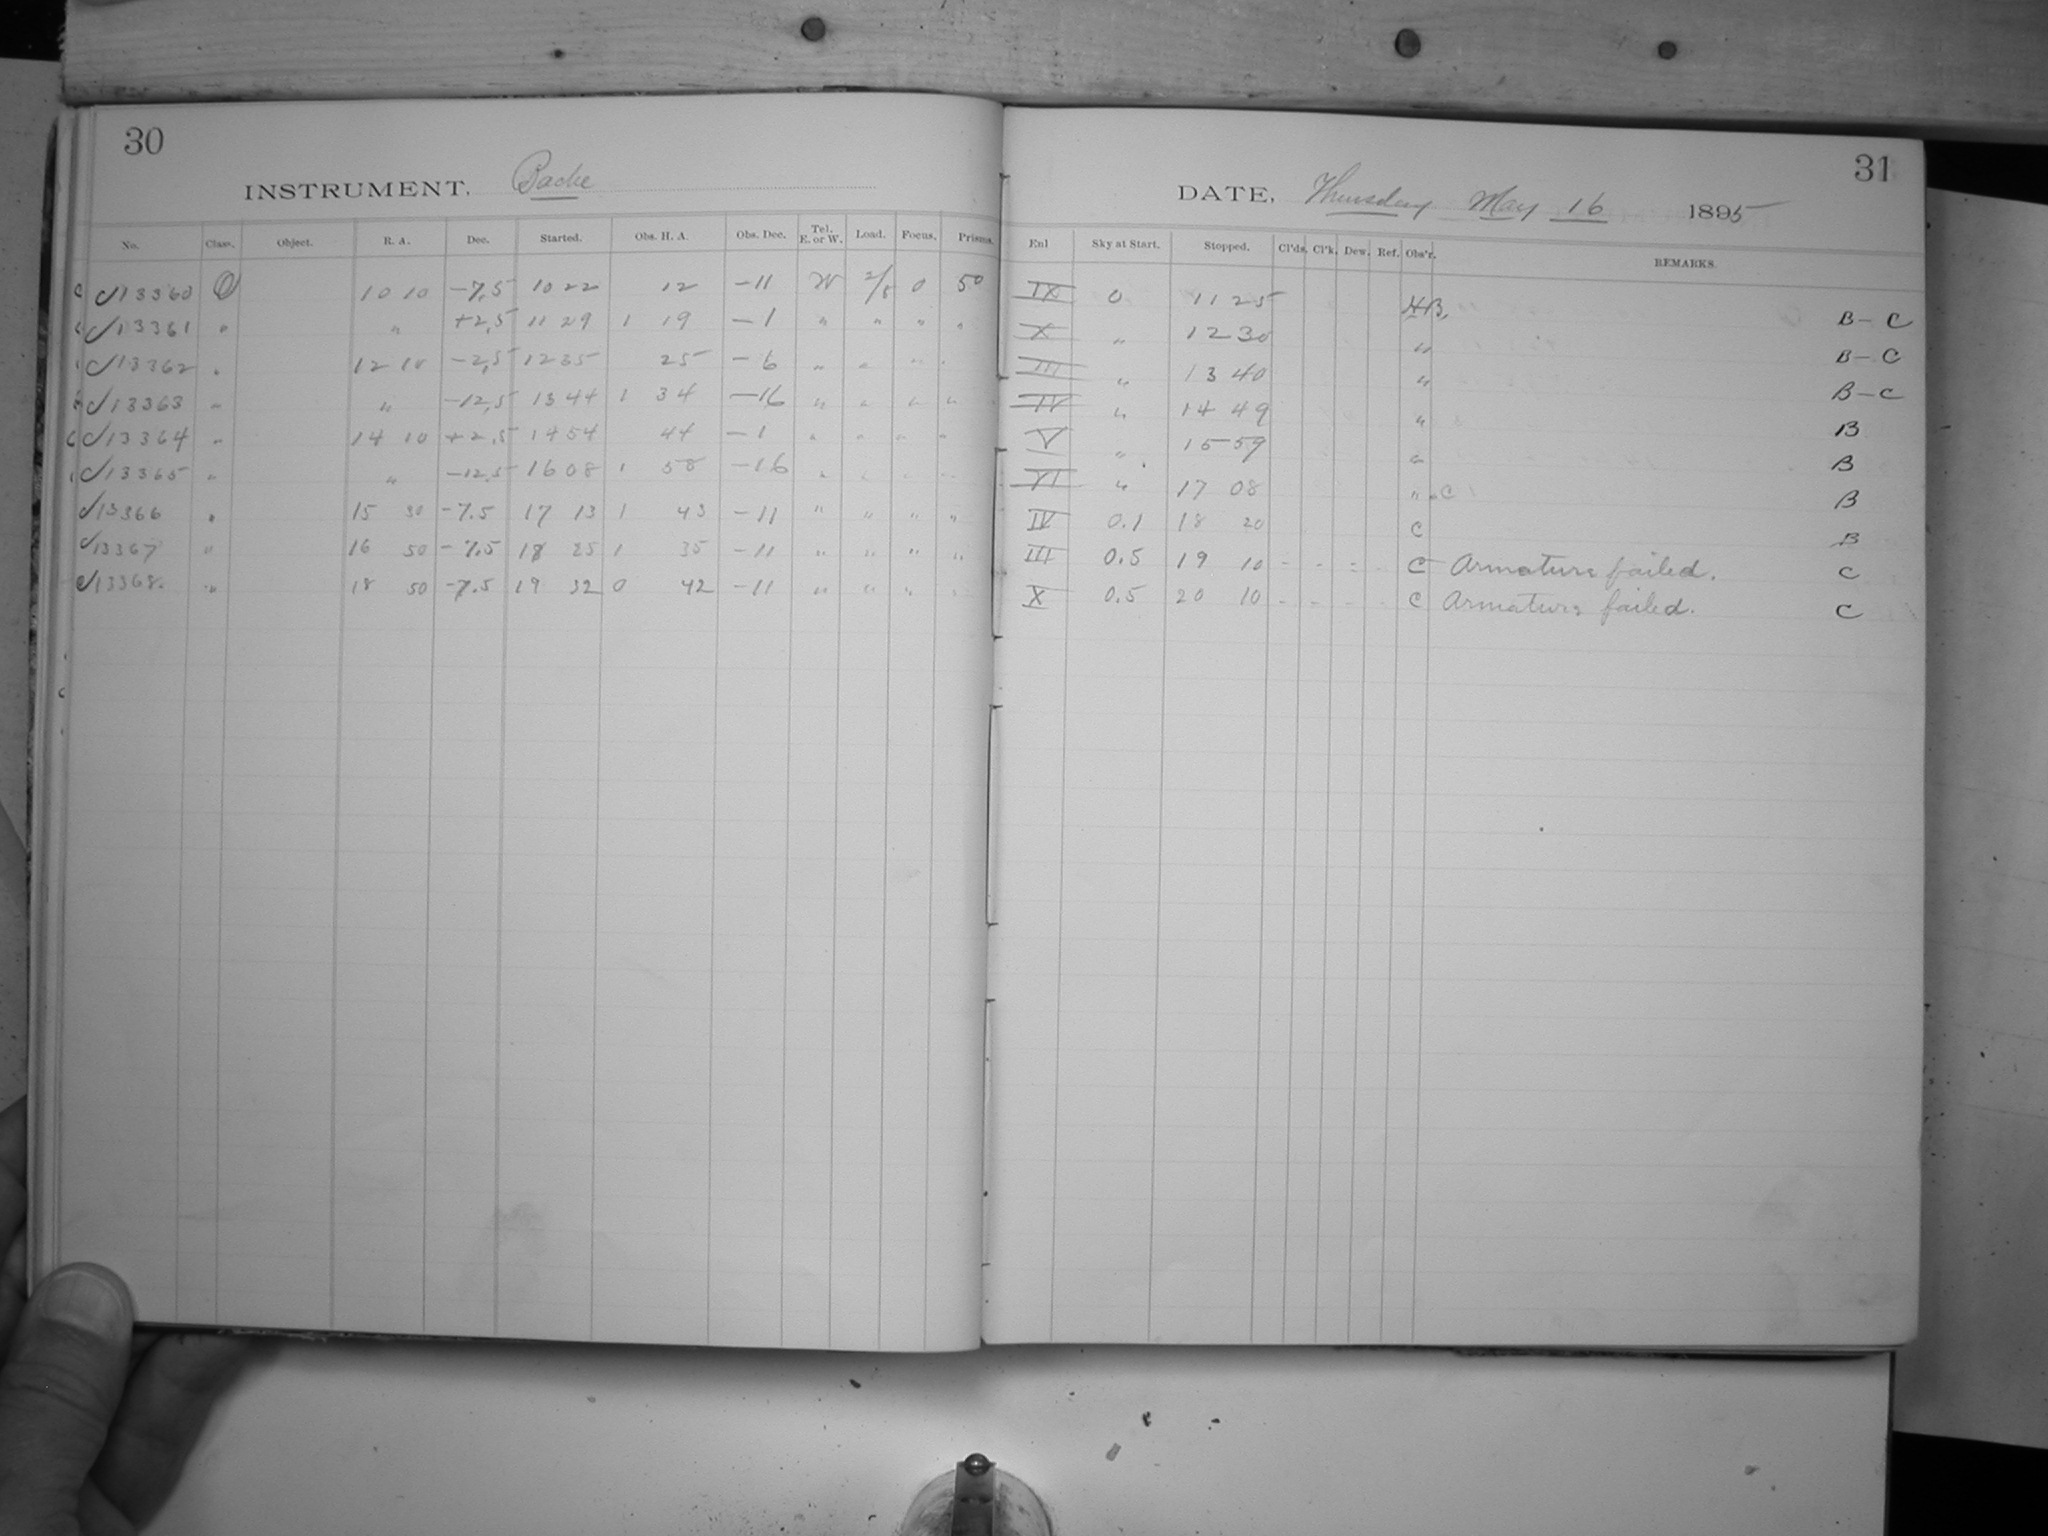 30
INSTRUMENT. Bache
No. Class. Object. R. A. Dec. Started. Obs. H. A. Obs. Dec. Tel. E. or W. Load. Focus. Prisms.
13360 O 10 10 -7.5 10 22 12 -11 W 2/5 0 50
13361 " " +2.5 11 29 1 19 -1 " " " "
13362 " 12 10 -2.5 12 35 25 -6 " " " "
13363 " " -12.5 13 44 1 34 -16 " " " "
13364 " 14 10 +2.5 14 54 44 -1 " " " "
13365 " " -12.5 16 08 1 58 -16 " " " "
13366 " 15 30 -7.5 17 13 1 43 -11 " " " "
13367 " 16 50 -7.5 18 25 1 35 -11 " " " "
13368 " 18 50 -7.5 19 32 0 42 -11 " " " "
31
DATE, Thursday May 16 1895
Enl Sky at Start. Stopped. Cl'ds. Cl'k. Dew. Ref. Obs'r. REMARKS.
IX 0 11 25 HB. B-C
X " 12 30 " B-C
III " 13 40 " B-C
IV " 14 49 " B
V " 15 59 " B
VI " 17 08 " C B
IV 0.1 18 20 C B
III 0.5 19 10 - - - - C Armature failed. C
X 0.5 20 10 - - - - C Armature failed. C